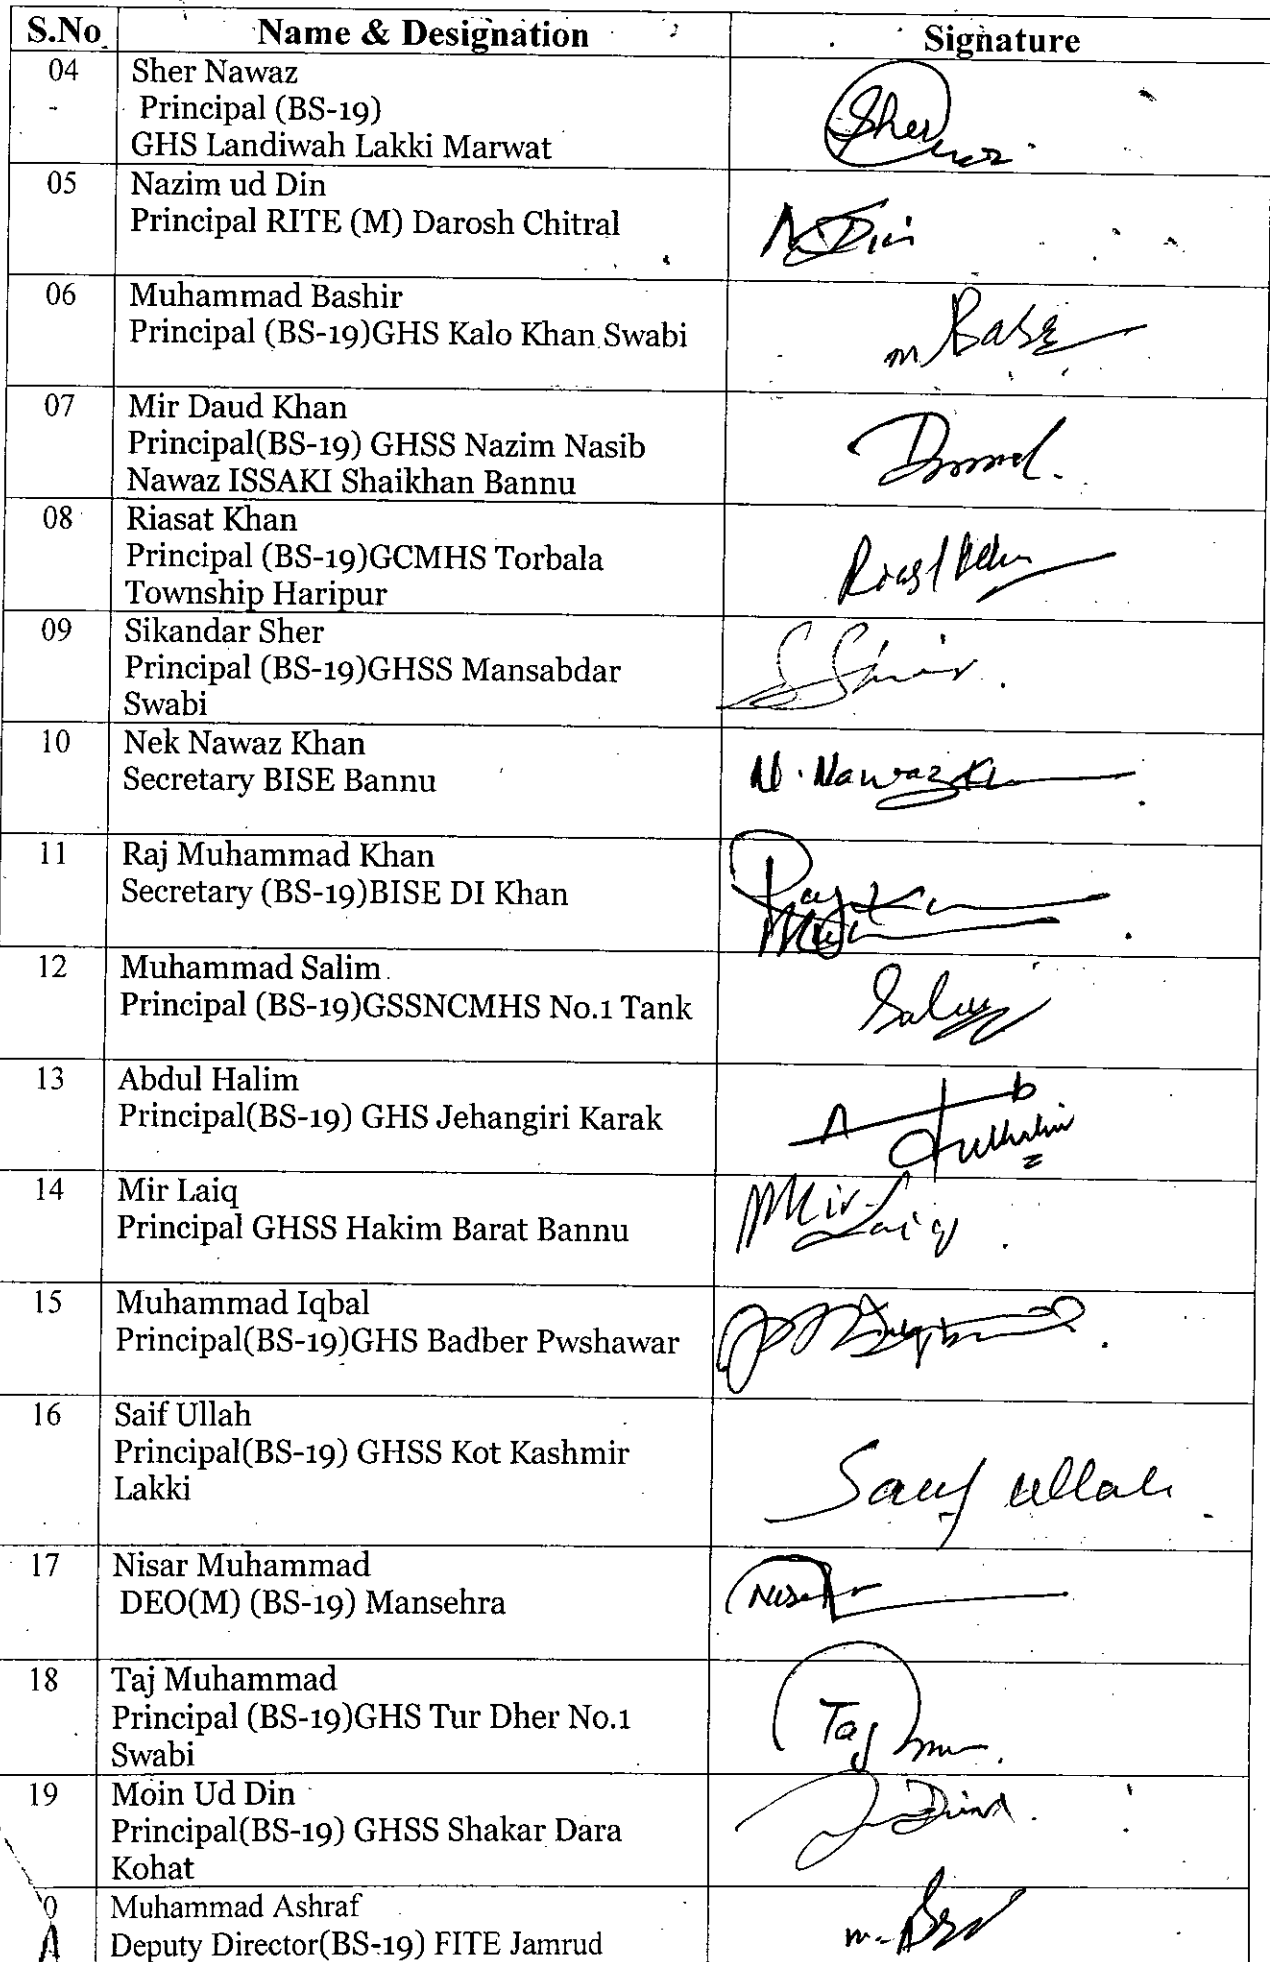 S.No Name & Designation Signature
04 Sher Nawaz
Principal (BS-19)
GHS Landiwah Lakki Marwat
Sher
05 Nazim ud Din
Principal RITE (M) Darosh Chitral
Din
06 Muhammad Bashir
Principal (BS-19)GHS Kalo Khan Swabi
m
07 Mir Daud Khan
Principal(BS-19) GHSS Nazim Nasib
Nawaz ISSAKI Shaikhan Bannu
08 Riasat Khan
Principal (BS-19)GCMHS Torbala
Township Haripur
09 Sikandar Sher
Principal (BS-19)GHSS Mansabdar
Swabi
10 Nek Nawaz Khan
Secretary BISE Bannu
N. Nawaz
11 Raj Muhammad Khan
Secretary (BS-19)BISE DI Khan
12 Muhammad Salim
Principal (BS-19)GSSNCMHS No.1 Tank
13 Abdul Halim
Principal(BS-19) GHS Jehangiri Karak
14 Mir Laiq
Principal GHSS Hakim Barat Bannu
Mir Laiq
15 Muhammad Iqbal
Principal(BS-19)GHS Badber Pwshawar
16 Saif Ullah
Principal(BS-19) GHSS Kot Kashmir
Lakki
Saif ullah
17 Nisar Muhammad
DEO(M) (BS-19) Mansehra
18 Taj Muhammad
Principal (BS-19)GHS Tur Dher No.1
Swabi
Taj
19 Moin Ud Din
Principal(BS-19) GHSS Shakar Dara
Kohat
0 Muhammad Ashraf
Deputy Director(BS-19) FITE Jamrud